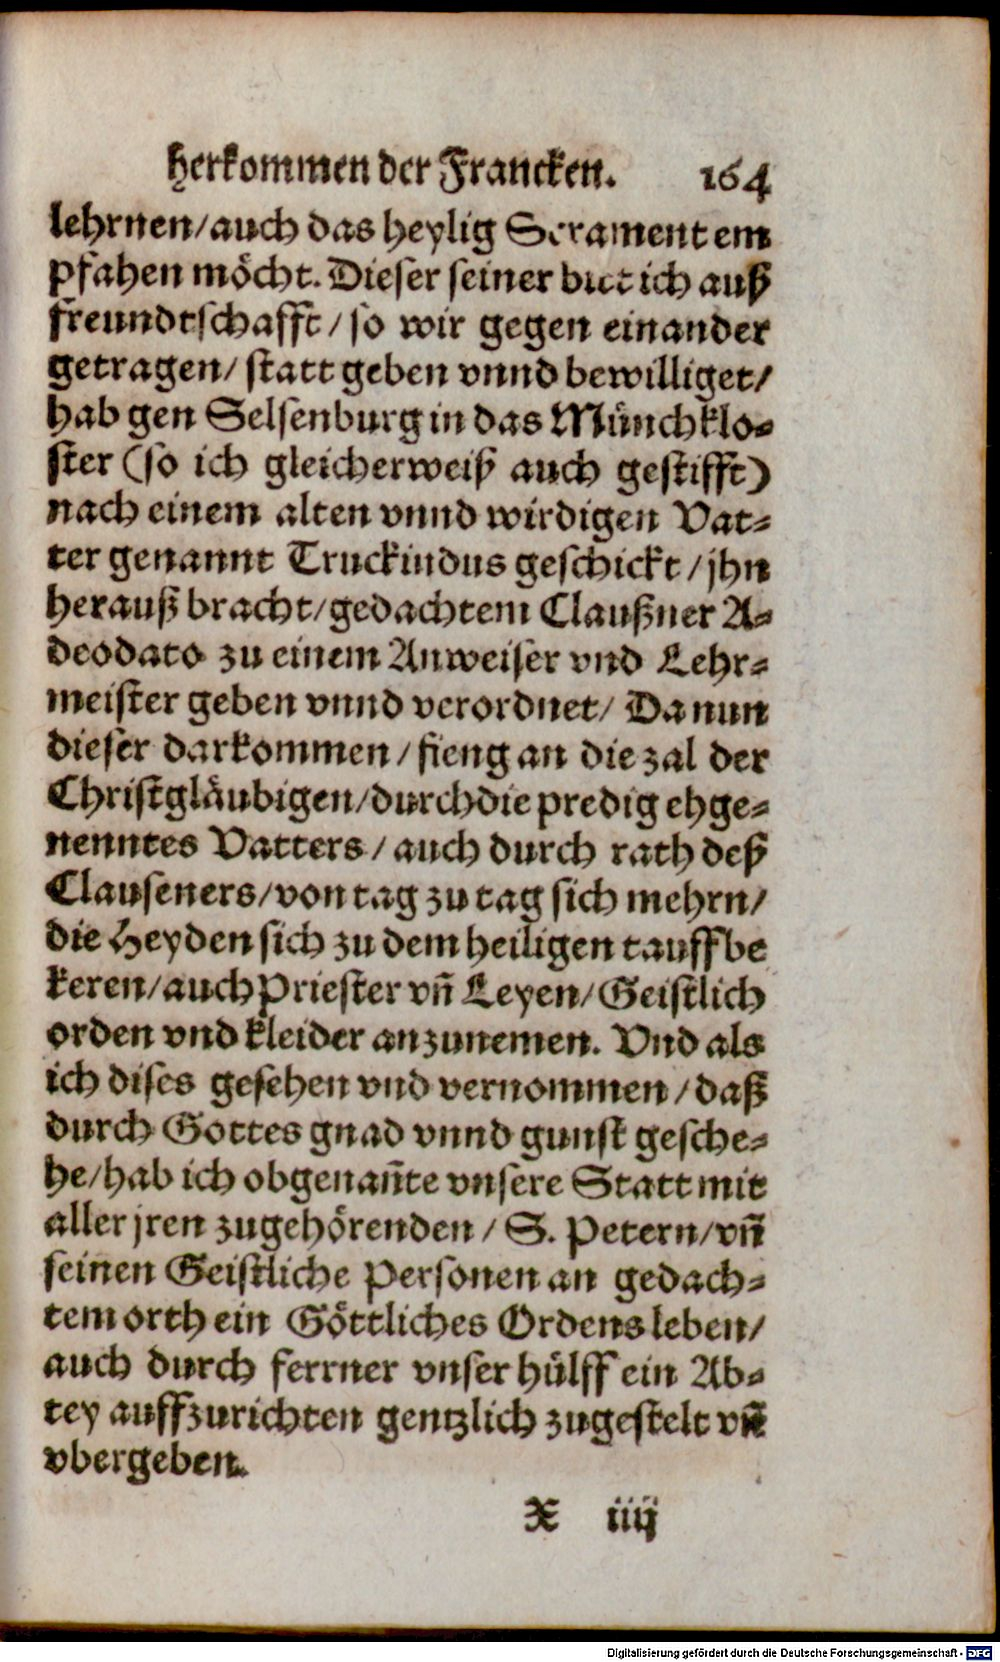 Herkommen der Francken. 164
lehrnen/auch das heylig Scrament em
pfahen möcht. Dieser seiner bitt ich auß
freundtschafft / so wir gegen einander
getragen/ statt geben vnnd bewilliget/
hab gen Selsenburg in das Münchklo⸗
ster (so ich gleicherweiß auch gestifft)
nach einem alten vnnd wirdigen Vat⸗
ter genannt Truckindus geschickt / jhn
herauß bracht/gedachtem Claußner A⸗
deodato zu einem Anweiser vnd Lehr⸗
meister geben vnnd verordnet/ Da nun
dieser darkommen / fieng an die zal der
Christgläubigen/durch die predig ehge⸗
nenntes Vatters / auch durch rath deß
Clauseners/von tag zu tag sich mehrn/
die Heyden sich zu dem heiligen tauff be
keren/auch Priester vñ Leyen/Geistlich
orden vnd kleider anzunemen. Vnd als
ich dises gesehen vnd vernommen / daß
durch Gottes gnad vnnd gunst gesche⸗
he/hab ich obgenañte vnsere Statt mit
aller jren zugehörenden / S. Petern/vñ
seinen Geistliche Personen an gedach⸗
tem orth ein Göttliches Ordens leben/
auch durch ferrner vnser hülff ein Ab⸗
tey auffzurichten gentzlich zugestelt vñ
vbergeben.
X iiij
Digitalisierung gefördert durch die Deutsche Forschungsgemeinschaft - DFG